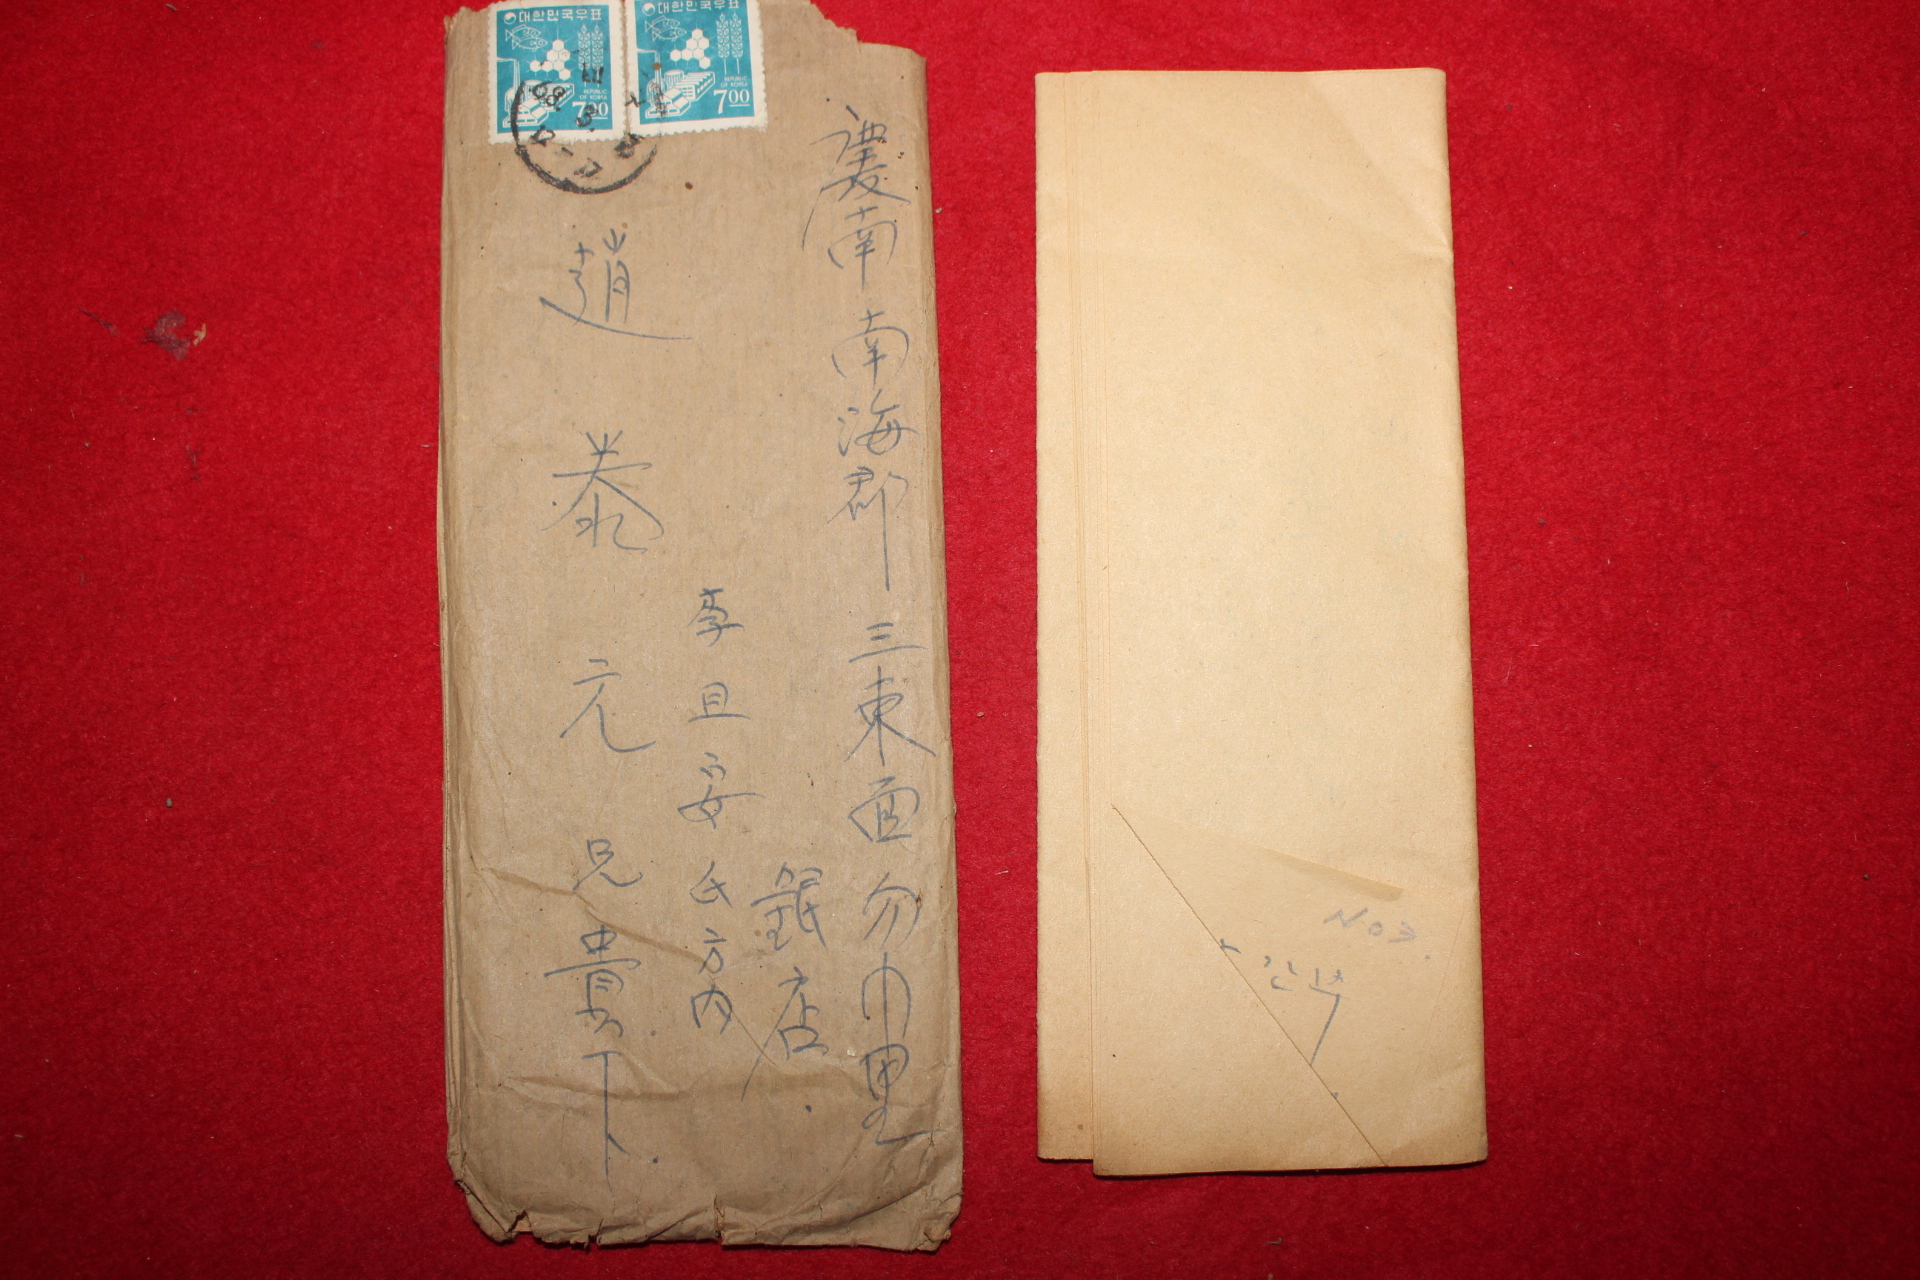 대한민국우표
REPUBLIC
OF KOREA
700
대한민국우표
REPUBLIC
OF KOREA
700
慶南 南海郡 三東面 勿巾里
銀店
李且妥氏方內
趙泰元兄貴下
NO3